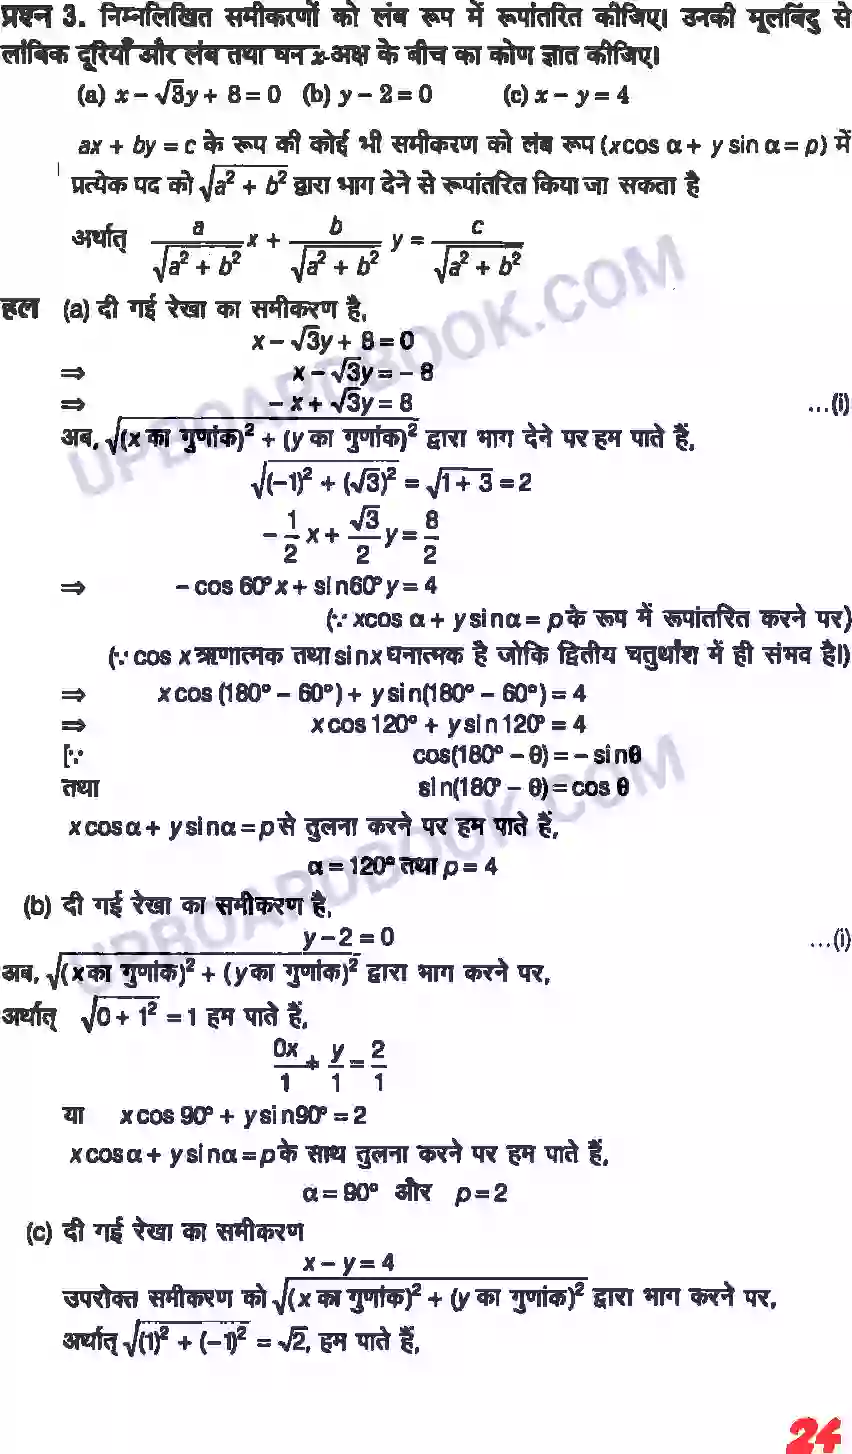 प्रश्न 3. निम्नलिखित समीकरणों को लंब रूप में रूपांतरित कीजिए। उनकी मूलबिंदु से
लांबिक दूरियाँ और लंब तथा घन x-अक्ष के बीच का कोण ज्ञात कीजिए।
(a) x – √3y + 8 = 0 (b) y – 2 = 0 (c) x – y = 4
ax + by = c के रूप की कोई भी समीकरण को लंब रूप (x cos α + y sin α = p) में
प्रत्येक पद को √(a² + b²) द्वारा भाग देने से रूपांतरित किया जा सकता है
अर्थात् a/√(a² + b²) x + b/√(a² + b²) y = c/√(a² + b²)
हल (a) दी गई रेखा का समीकरण है,
x – √3y + 8 = 0
⇒ x – √3y = – 8
⇒ – x + √3y = 8 ...(i)
अब, √((x का गुणांक)² + (y का गुणांक)²) द्वारा भाग देने पर हम पाते हैं,
√((–1)² + (√3)²) = √(1 + 3) = 2
– 1/2 x + √3/2 y = 8/2
⇒ – cos 60° x + sin 60° y = 4
(∵ x cos α + y sin α = p के रूप में रूपांतरित करने पर)
(∵ cos x ऋणात्मक तथा sin x धनात्मक है जोकि द्वितीय चतुर्थांश में ही संभव है।)
⇒ x cos (180° – 60°) + y sin(180° – 60°) = 4
⇒ x cos 120° + y sin 120° = 4
[∵ cos(180° – θ) = – sin θ
तथा sin(180° – θ) = cos θ
x cos α + y sin α = p से तुलना करने पर हम पाते हैं,
α = 120° तथा p = 4
(b) दी गई रेखा का समीकरण है,
y – 2 = 0 ...(i)
अब, √((x का गुणांक)² + (y का गुणांक)²) द्वारा भाग करने पर,
अर्थात् √(0 + 1²) = 1 हम पाते हैं,
0x/1 + y/1 = 2/1
या x cos 90° + y sin 90° = 2
x cos α + y sin α = p के साथ तुलना करने पर हम पाते हैं,
α = 90° और p = 2
(c) दी गई रेखा का समीकरण
x – y = 4
उपरोक्त समीकरण को √((x का गुणांक)² + (y का गुणांक)²) द्वारा भाग करने पर,
अर्थात् √((1)² + (–1)²) = √2, हम पाते हैं,
24
UPBOARDBOOK.COM
UPBOARDBOOK.COM